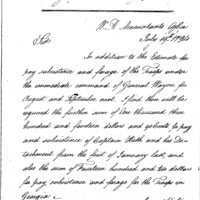 W. D. Accountants Office
July 19th 1794
Sir
In addition to the Estimate for
pay subsistence and forage of the Troops under
the immediate command of General Wayne for
August and September next I find there will be
required the further sum of one thousand three
hundred and fourteen dollars and for pay
and subsistence of Captain and his De-
tachment from the first of January last, and
also the sum of Fourteen hundred and two dollars
for pay, subsistence and forage for the Troops in
Georgia